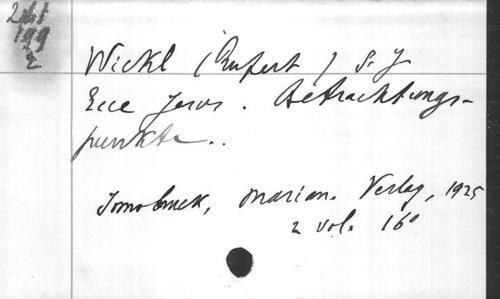 199
2
Wickl (Rupert) S. J
Ecce Jesus. Betrachtungs-
punkte..
Innsbruck, Marian. Verlag, 1925
2 vol. 16°